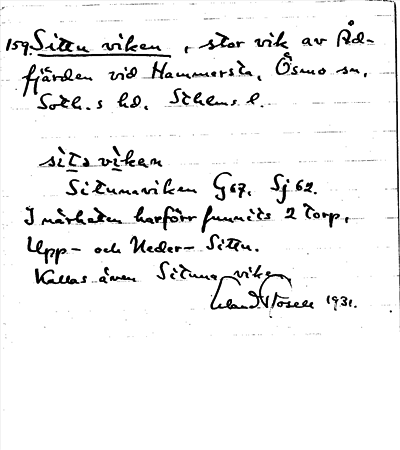 159. Sittu viken, stor vik av Åd-
fjärden vid Hammersta, Ösmo sn,
Soth.s hd. Sthms l.
sìta vìkan
Situnaviken G67. Sj 62.
I närheten har förr funnits 2 torp,
Upp- och Neder- Sittu.
Kallas även Situna viken
Erland Rosell 1931.